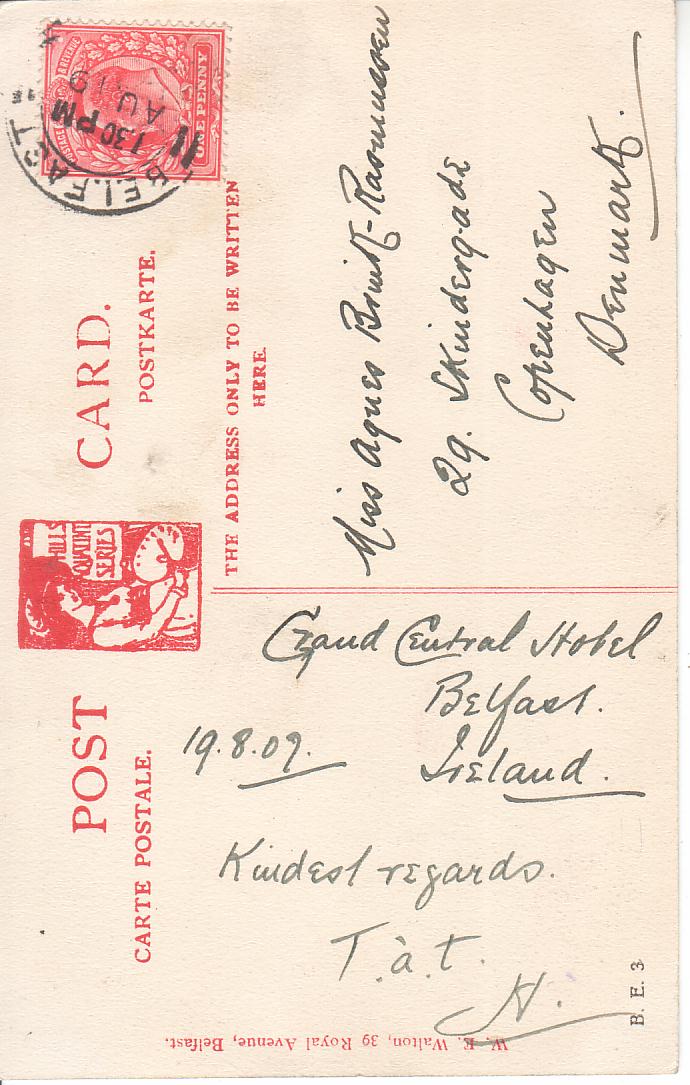 POST CARD.
CARTE POSTALE.
POSTKARTE.
HILLS
QUAINT
SERIES
THE ADDRESS ONLY TO BE WRITTEN
HERE.
ONE PENNY
POSTAGE
& REVENUE
BELFAST
1.30 PM
AU 19
Grand Central Hotel
Belfast.
19.8.09.
Ireland.
Kindest regards.
T. à. t.
H.
Miss Agnes Brink-Rasmussen
29. Skindergade
Copenhagen
Denmark.
W. E. Walton, 39 Royal Avenue, Belfast.
B. E. 3